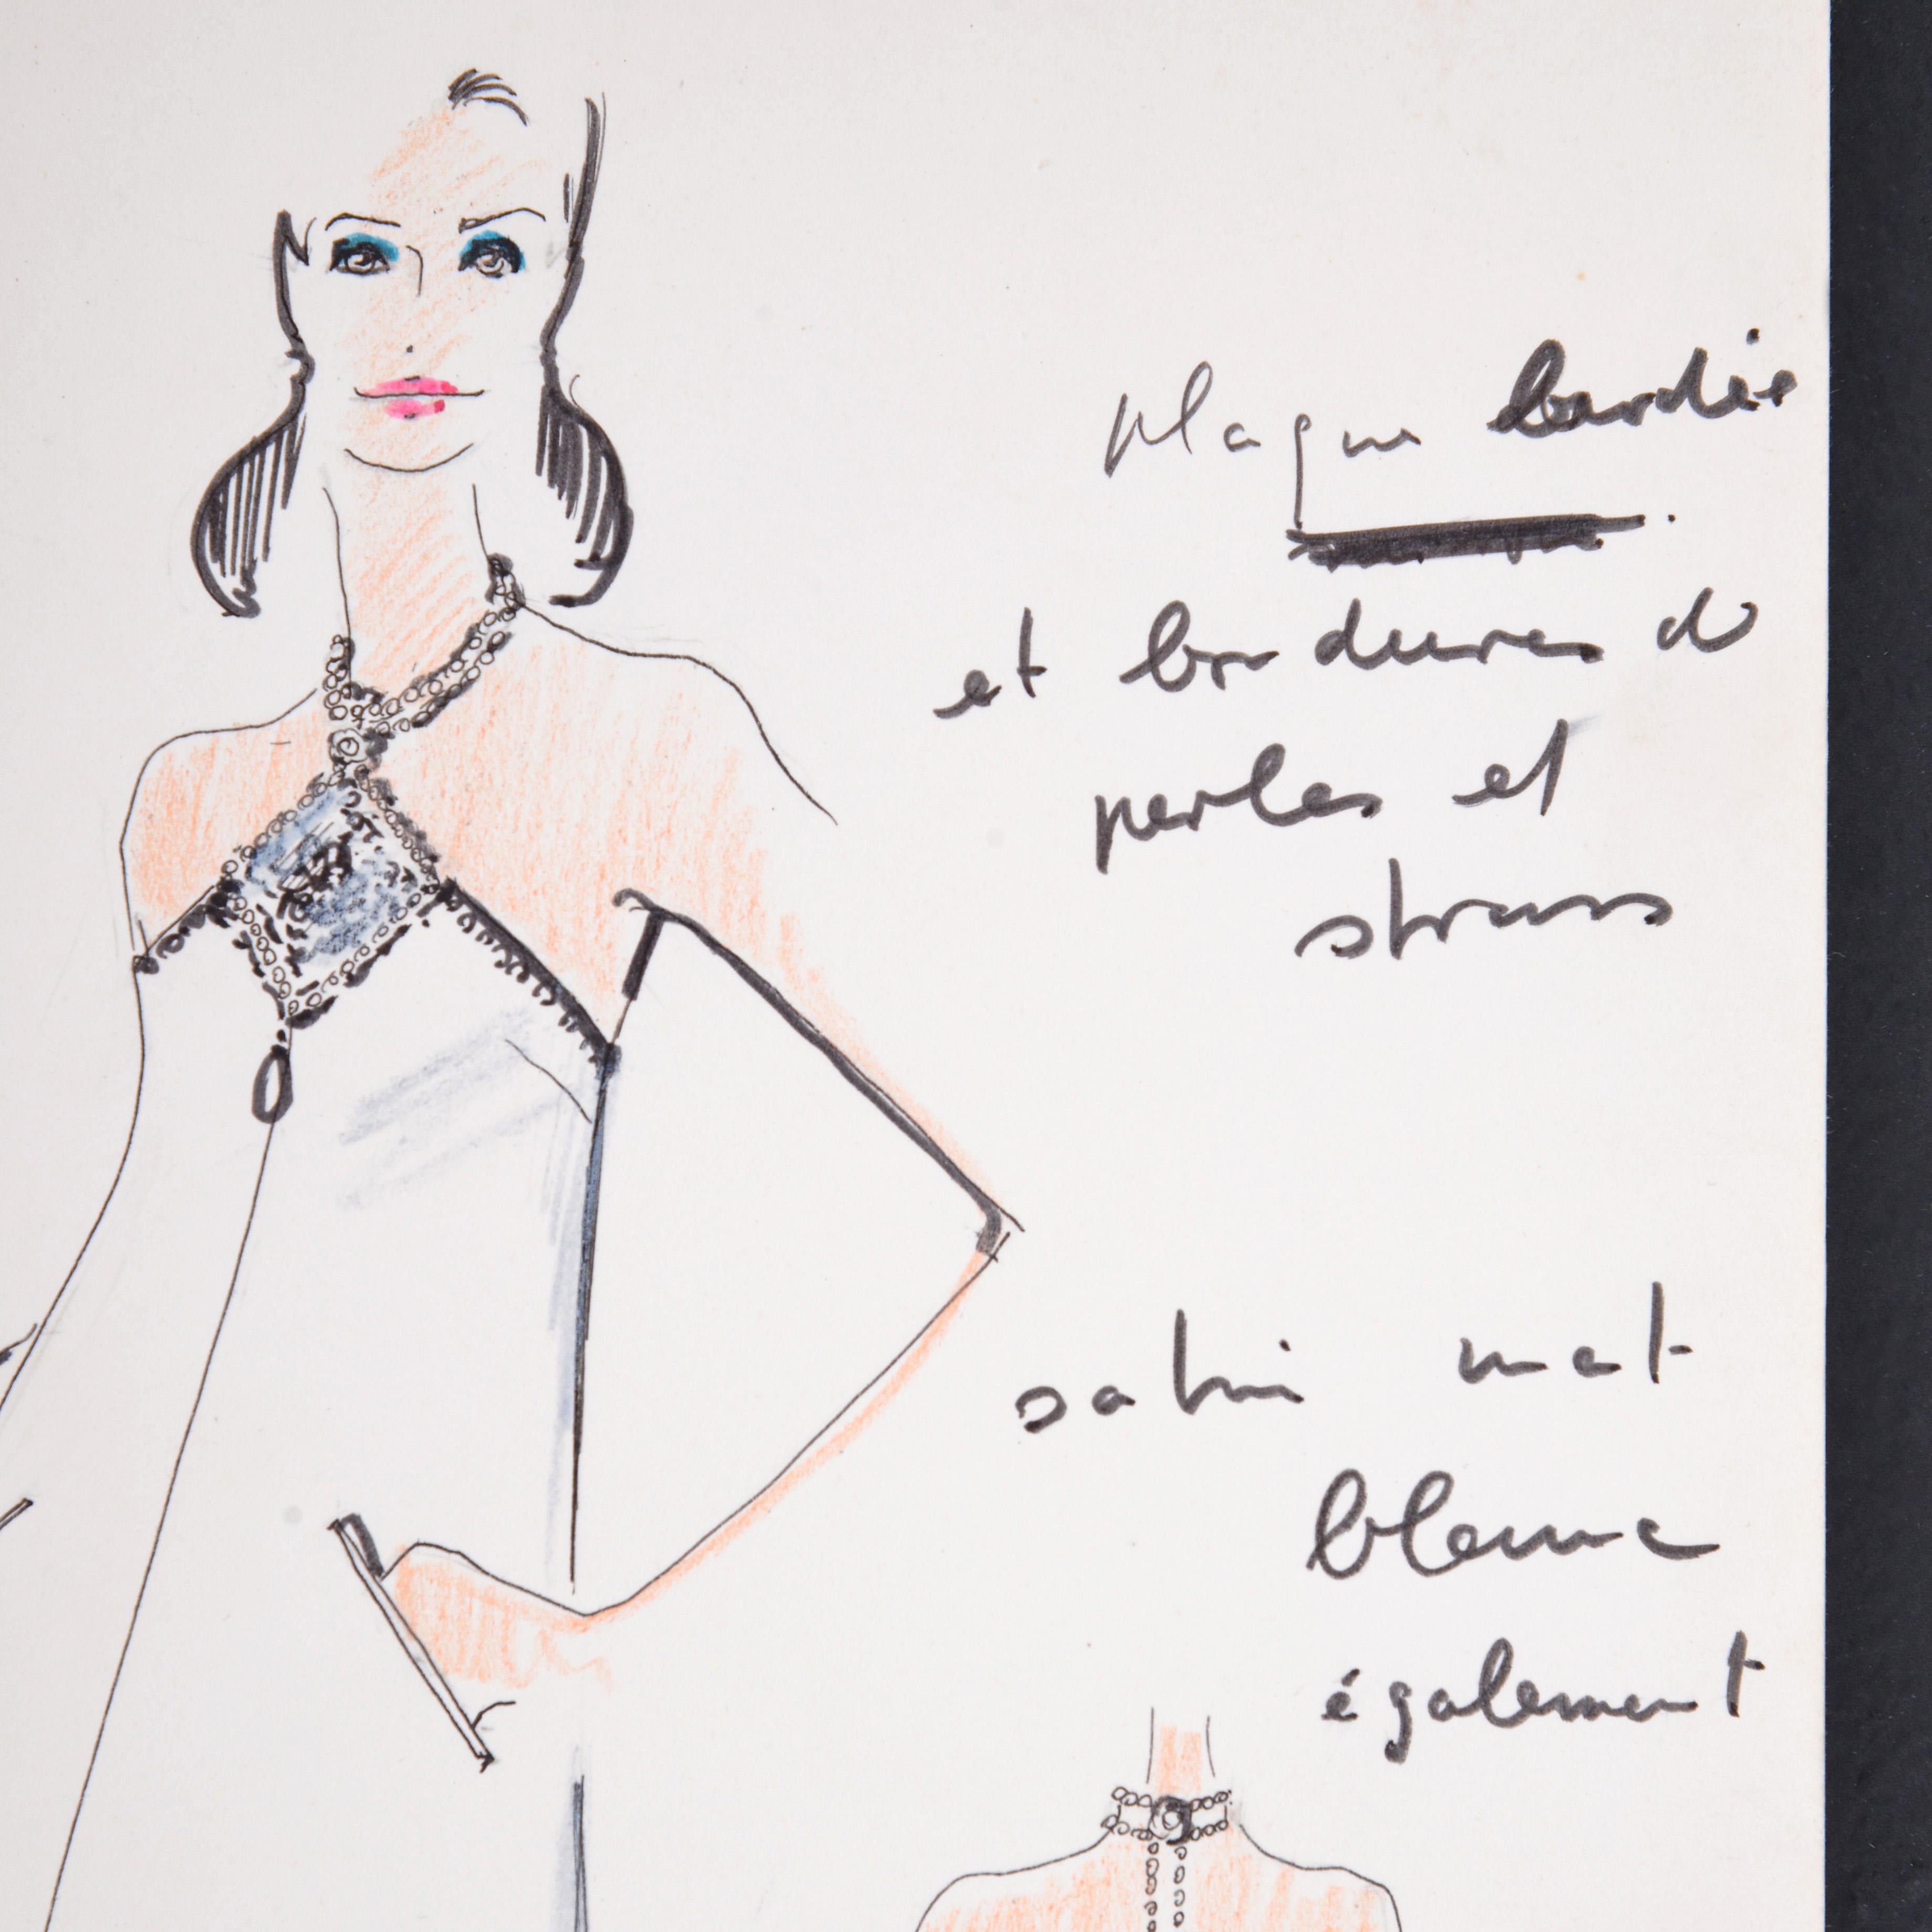 plaque bordée
et bordures d
perles et
strass
satin mat
blanc
également